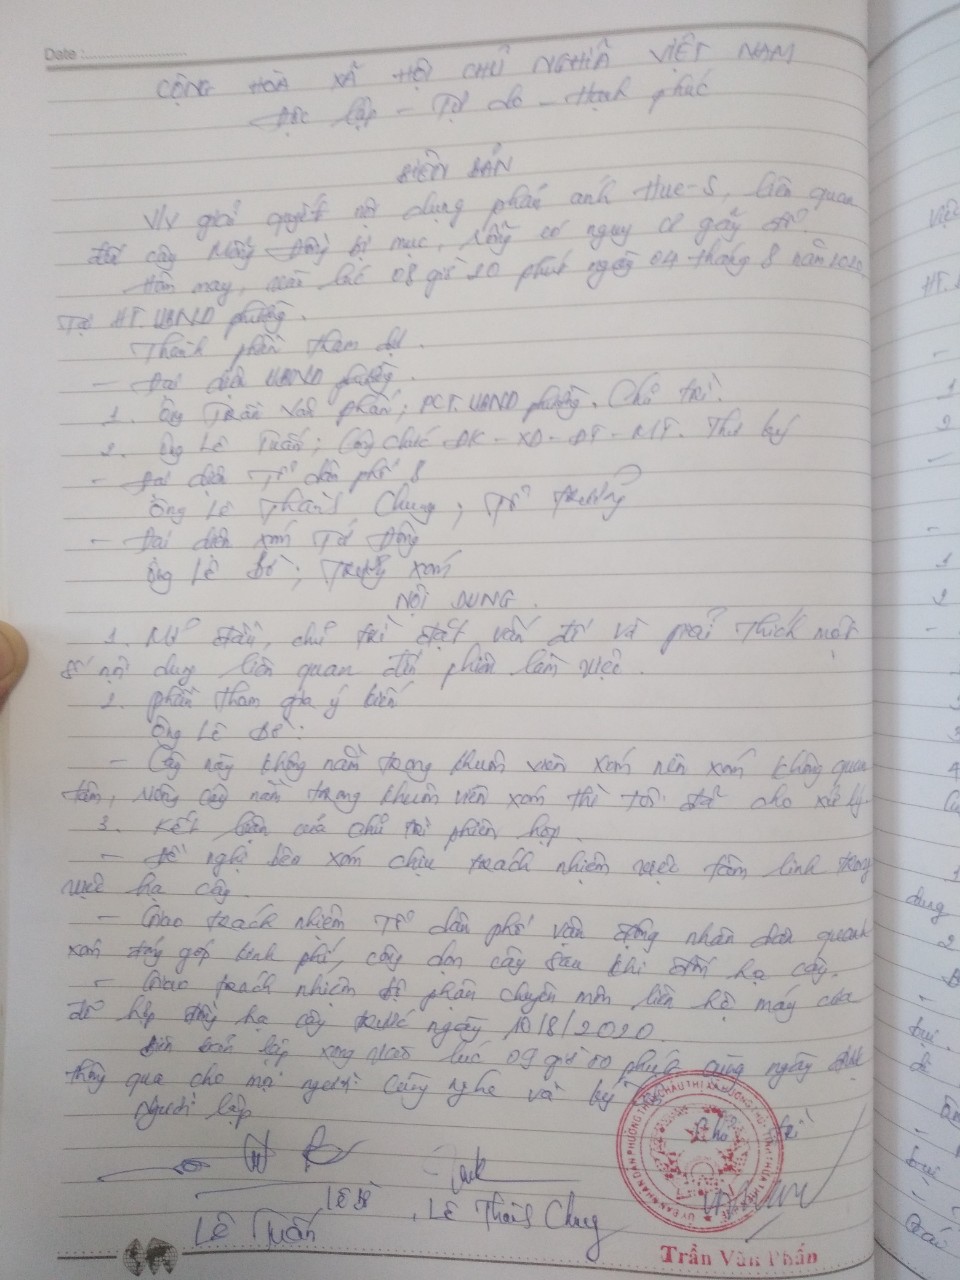 Date :
CỘNG HOÀ XÃ HỘI CHỦ NGHĨA VIỆT NAM
Độc lập - Tự do - Hạnh phúc
BIÊN BẢN
V/v giải quyết nội dung phản ánh Hue-S, liên quan
đến cây bị mục, rỗng có nguy cơ gãy đổ.
Hôm nay, vào lúc 08 giờ 20 phút ngày 04 tháng 8 năm 2020
Tại HT. UBND phường.
Thành phần tham dự.
- Đại diện UBND phường.
1. Ông Trần Văn Phấn; PCT. UBND phường. Chủ trì.
2. Ông Lê Tuấn; Công chức ĐC - XD - ĐT - MT. Thư ký
- Đại diện Tổ dân phố 8
Ông Lê Thành Chung; Tổ trưởng
- Đại diện xóm Tứ Đông
Ông Lê Bê; Trưởng xóm
NỘI DUNG.
1. Mở đầu, chủ trì đặt vấn đề và giải thích một
số nội dung liên quan đến phiên làm việc.
2. Phần tham gia ý kiến
Ông Lê Bê:
- Cây này không nằm trong khuôn viên xóm nên xóm không quan
tâm, nếu cây nằm trong khuôn viên xóm thì tôi đã cho xử lý.
3. Kết luận của chủ trì phiên họp.
- Đề nghị bên xóm chịu trách nhiệm việc tâm linh trong
việc hạ cây.
- Giao trách nhiệm Tổ dân phố vận động nhân dân quanh
xóm đóng góp kinh phí, công dọn cây sau khi đốn hạ cây.
- Giao trách nhiệm bộ phận chuyên môn liên hệ máy cưa
để hạ cây trước ngày 10/8/2020.
Biên bản lập xong vào lúc 09 giờ 00 phút cùng ngày được
thông qua cho mọi người cùng nghe và ký
Người lập
Chủ trì
Lê Bê
Lê Thành Chung
Lê Tuấn
Trần Văn Phấn